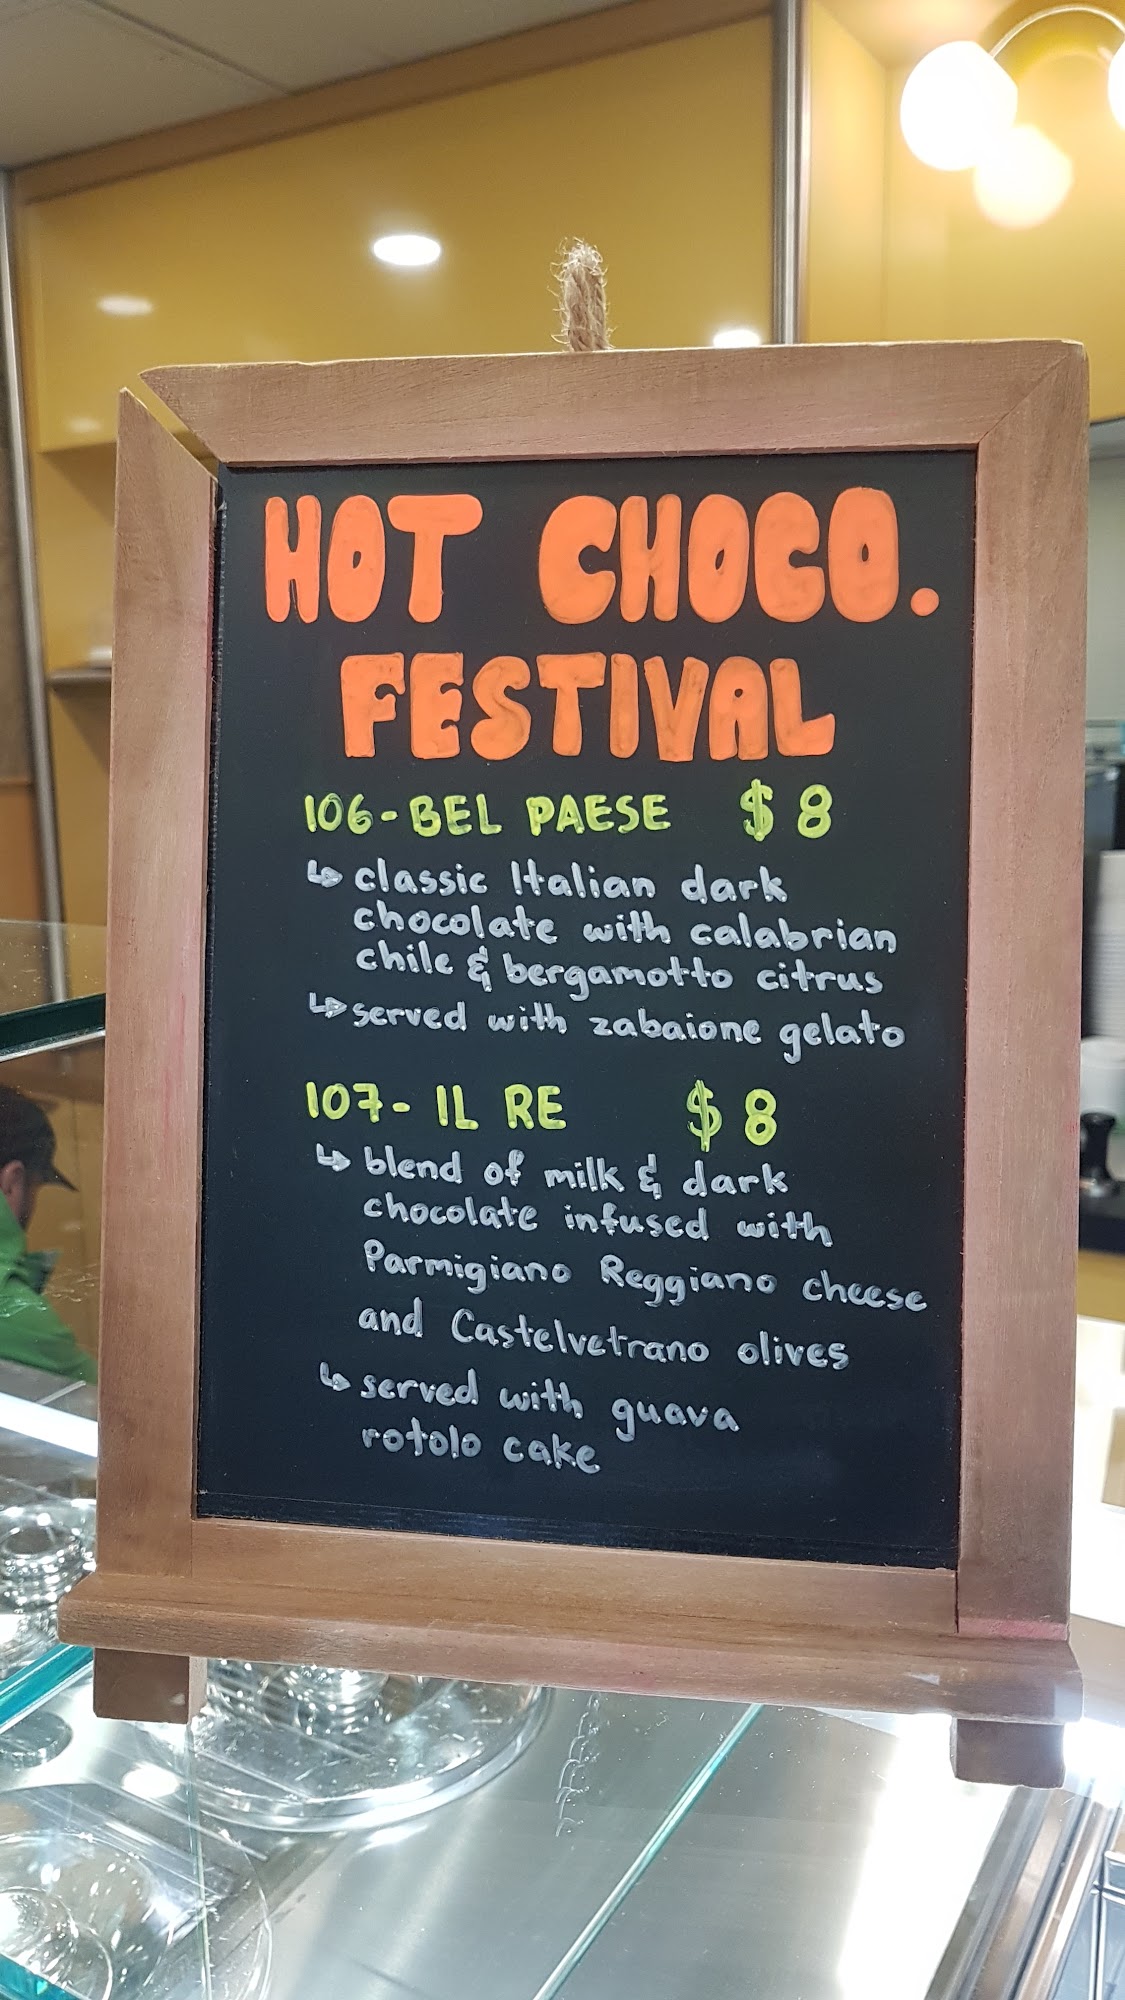 HOT CHOCO.
FESTIVAL
106-BEL PAESE $8
↳ classic Italian dark
chocolate with calabrian
chile & bergamotto citrus
↳ served with zabaione gelato
107- IL RE $8
↳ blend of milk & dark
chocolate infused with
Parmigiano Reggiano cheese
and Castelvetrano olives
↳ served with guava
rotolo cake